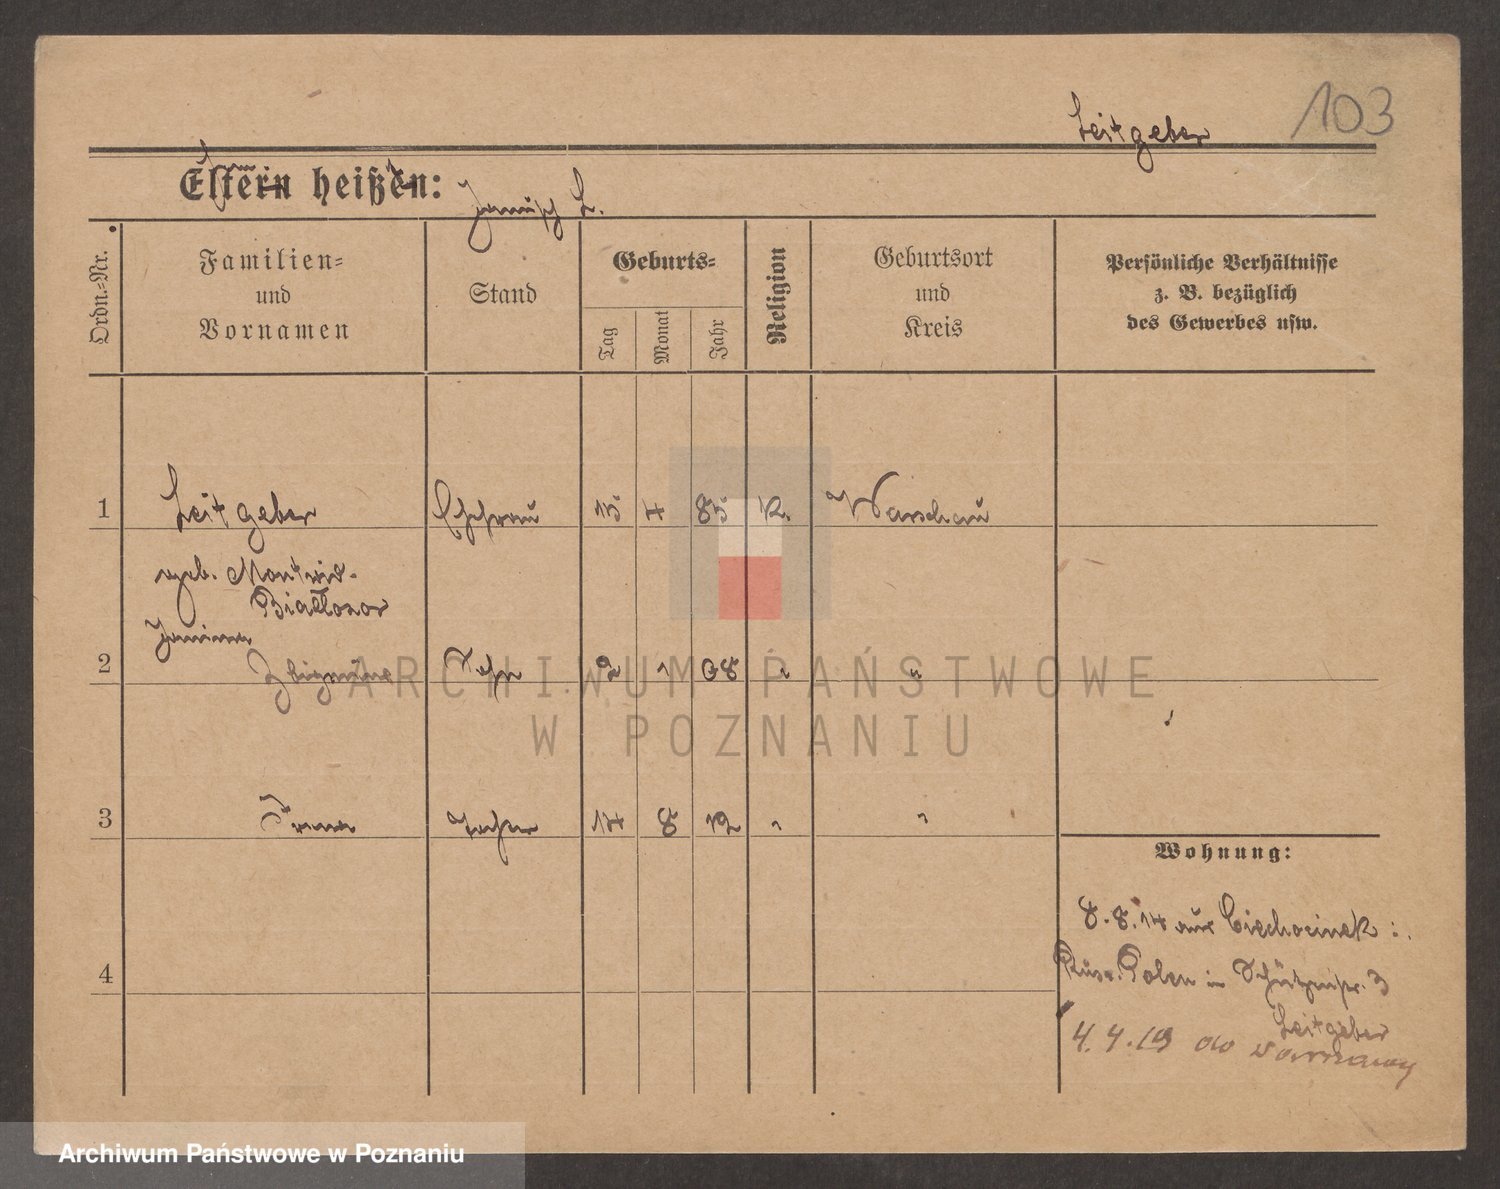 Leitgeber
103
Eltern heißen:
Janusch L.
Ordn.-Nr.
Familien-
und
Vornamen
Stand
Geburts-
Tag
Monat
Jahr
Religion
Geburtsort
und
Kreis
Persönliche Verhältnisse
z. B. bezüglich
des Gewerbes usw.
1 Leitgeber Ehefrau 15 4 85 K. Warschau
geb. Montwid-
Białłozor
Janina
2 Sohn 2 1 08 " "
3 Irena Tochter 14 8 12 " "
Wohnung:
8.8.14 aus Ciechocinek :.
Russ. Polen in Schützenstr. 3
4
Leitgeber
4.4.19 do Warszawy
ARCHIWUM PAŃSTWOWE
W POZNANIU
Archiwum Państwowe w Poznaniu